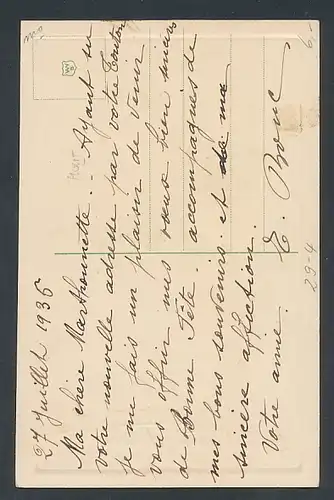 27 Juillet 1935
Ma chère Marthounette. - Ayant su
votre nouvelle adresse par votre Tonton
je me fais un plaisir de venir
vous offrir mes vœux bien sincères
de Bonne Fête. accompagnés de
mes bons souvenirs et de ma
sincère affection.
Votre amie.
E.
29-4